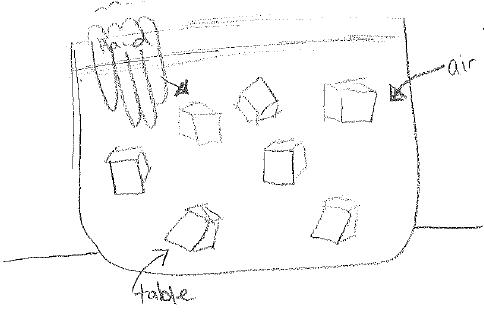 hand
air
table